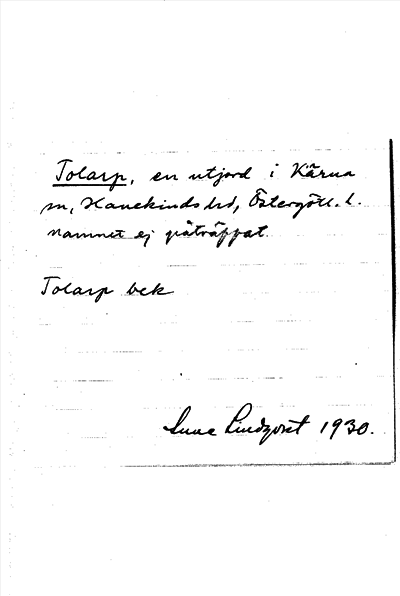 Tolarp, en utjord i Kärna
sn, Hanekinds hd, Östergötl. l.
namnet ej påträffat
Tolarp bek
Sune Lindqvist 1930.